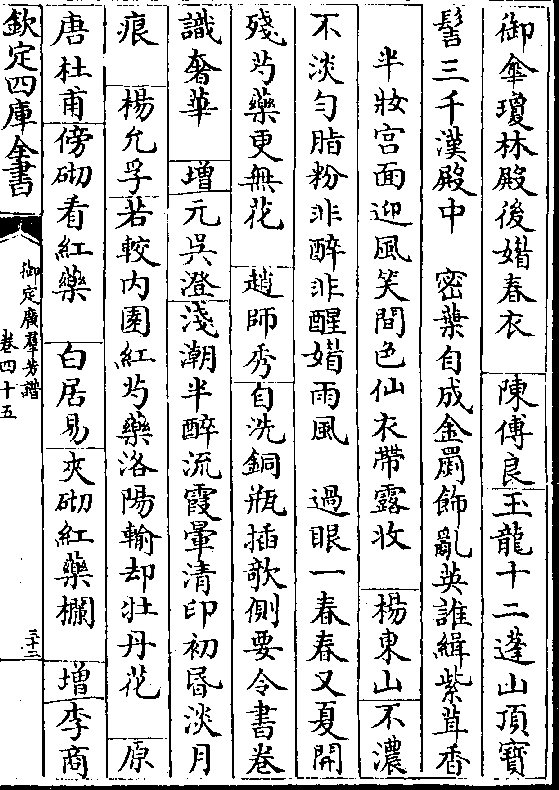 御傘瓊林殿後㛫春衣　陳傅良玉龍十二蓬山頂寶
髻三千漢殿中　宻葉自成金罽飾亂英誰緝紫茸香
半妝宫面迎風笑間色仙衣帶露妝　楊東山不濃
不淡勻脂粉非醉非醒㛫雨風　過眼一春春又夏開
殘芍藥更無花　趙師秀自洗銅瓶插欹側要令書卷
識奢華　增元吳澄淺潮半醉流霞暈清印初昬淡月
痕　楊允孚若較内園紅芍藥洛陽輸却牡丹花　原
唐杜甫傍砌看紅藥　白居易夾砌紅藥欄　增李商
欽定四庫全書
御定廣羣芳譜
卷四十五
三十三